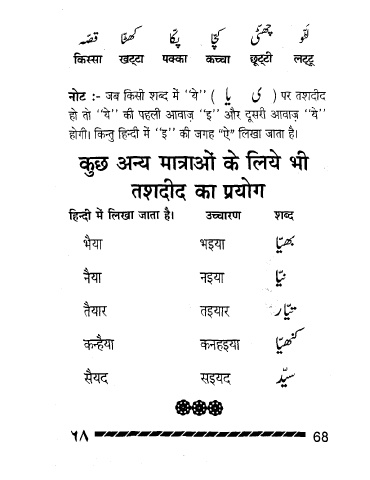 قصّہ کھٹّا پکّا کچّا چھٹّی لٹّو
किस्सा खट्टा पक्का कच्चा छूट्टी लट्टू
नोट :- जब किसी शब्द में "ये" ( ی یا ) पर तशदीद
हो तो "ये" की पहली आवाज़ "इ" और दूसरी आवाज़ "ये"
होगी। किन्तु हिन्दी में "इ" की जगह "ऐ" लिखा जाता है।
कुछ अन्य मात्राओं के लिये भी
तशदीद का प्रयोग
हिन्दी में लिखा जाता है। उच्चारण शब्द
भैया भइया بھیّا
नैया नइया نیّا
तैयार तइयार تیّار
कन्हैया कनहइया کنھیّا
सैयद सइयद سیّد
۶۸ 68